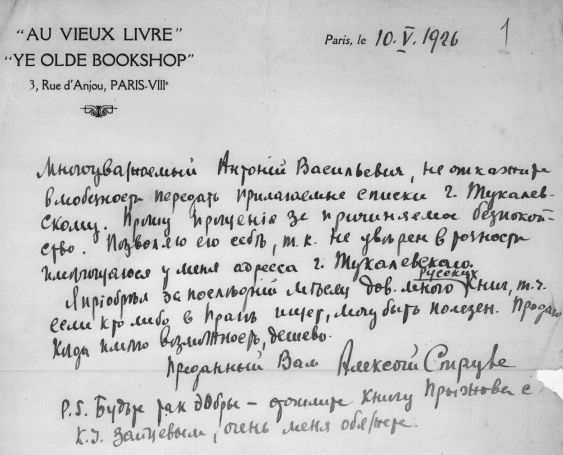 "AU VIEUX LIVRE"
"YE OLDE BOOKSHOP"
3, Rue d'Anjou, PARIS-VIIIe
Paris, le 10. V. 1926
1
Многоуважаемый Антоній Васильевич, не откажите
в любезности передать прилагаемые списки г. Тукалев-
скому. Прошу прощенія за причиняемое безпокой-
ство. Позволяю его себѣ, т.к. не увѣрен в точности
имѣющагося у меня адресса г. Тукалевскаго.
Я пріобрѣл за послѣдній мѣсяц дов. много русских книг, т.ч.
если кто либо в Прагѣ ищет, могу быть полезен. Продаю
когда имѣю возможность, дешево.
Преданный Вам Алексѣй
P.S. Будьте так добры – отошлите книгу Прыжова с
К.І. Зайцевым, очень меня обяжете.